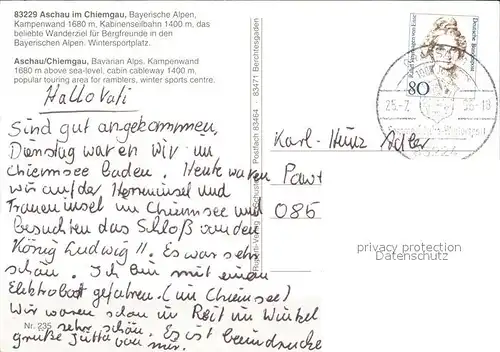 83229 Aschau im Chiemgau, Bayerische Alpen,
Kampenwand 1680 m, Kabinenseilbahn 1400 m, das
beliebte Wanderziel für Bergfreunde in den
Bayerischen Alpen. Wintersportplatz.
Aschau/Chiemgau, Bavarian Alps. Kampenwand
1680 m above sea-level, cabin cableway 1400 m,
popular touring area for ramblers, winter sports centre.
Hallo Vati
Sind gut angekommen,
Dienstag waren wir im
Chiemsee baden. Heute waren
wir auf der Herreninsel und
Fraueninsel im Chiemsee und
besuchten das Schloß von den
König Ludwig II. Es war sehr
schön. Ich bin mit einen
Elektroboot gefahren (im Chiemsee)
Wir waren schon im Reit im Winkel
sehr schön. Es ist beeindrucke
Grüße Jutta von mir.
Nr. 235
83471 Berchtesgaden
Postfach 83464
Deutsche Bundespost
80
25.-7
-18
Karl-Heinz Adler
085
privacy protection
Datenschutz